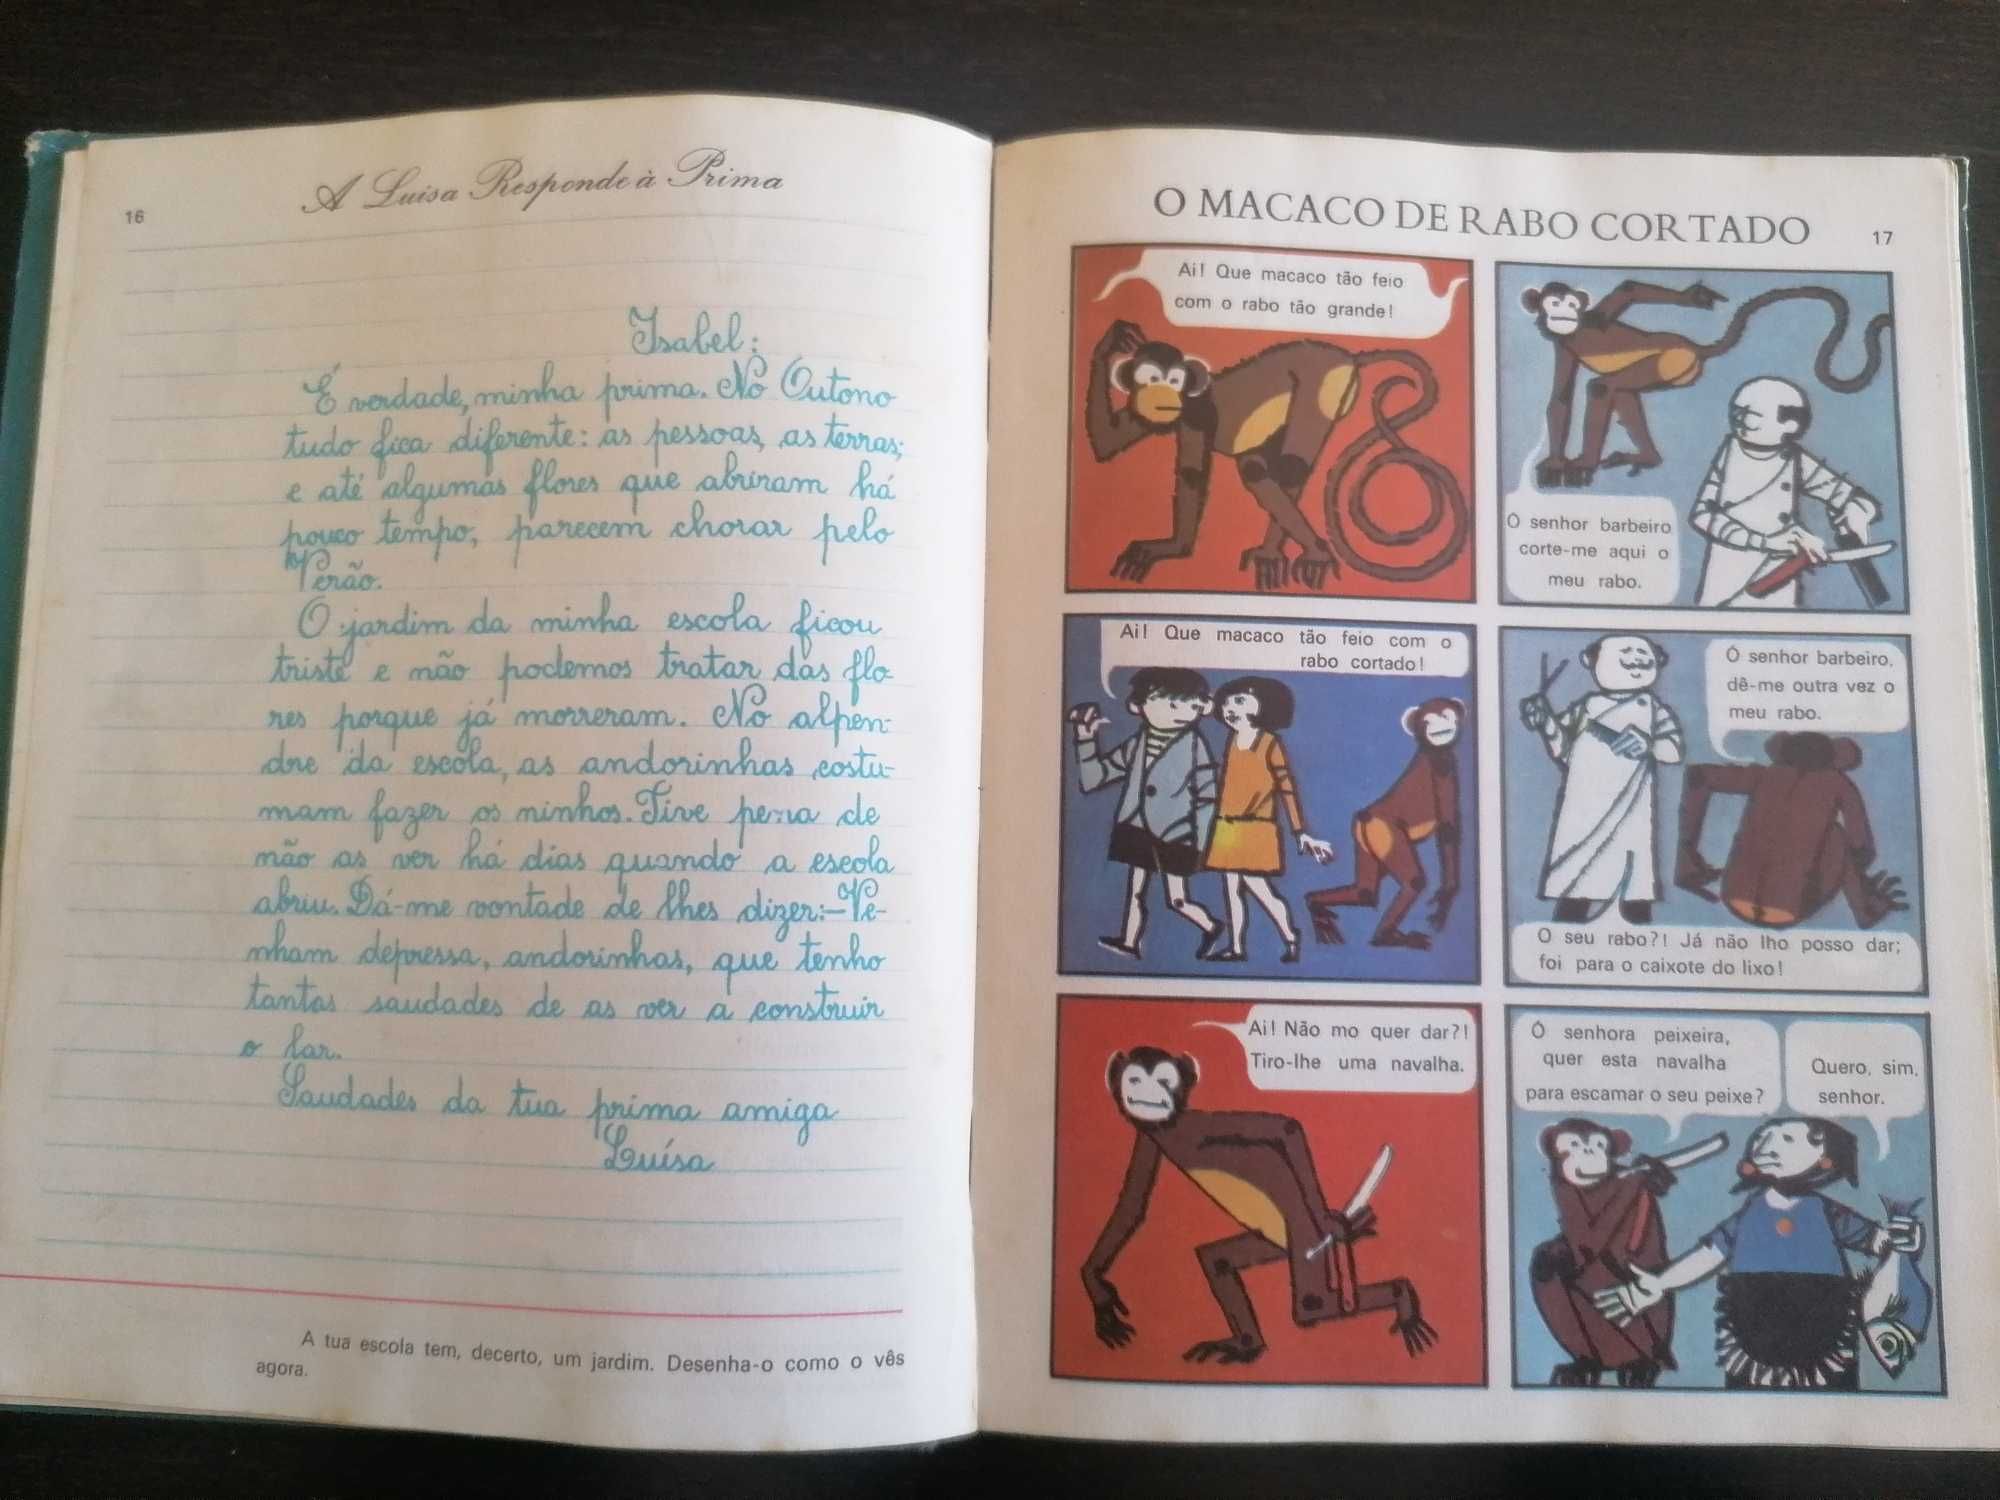 16
A Luisa Responde à Prima
Isabel:
É verdade, minha prima. No Outono
tudo fica diferente: as pessoas, as terras;
e até algumas flores que abriram há
pouco tempo, parecem chorar pelo
Verão.
O jardim da minha escola ficou
triste e não podemos tratar das flo-
res porque já morreram. No alpen-
dre da escola, as andorinhas costu-
mam fazer os ninhos. Tive pena de
não as ver há dias quando a escola
abriu. Dá-me vontade de lhes dizer:—Ve-
nham depressa, andorinhas, que tenho
tantas saudades de as ver a construir
o lar.
Saudades da tua prima amiga
Luísa
A tua escola tem, decerto, um jardim. Desenha-o como o vês
agora.
O MACACO DE RABO CORTADO
17
Ai! Que macaco tão feio
com o rabo tão grande!
Ó senhor barbeiro
corte-me aqui o
meu rabo.
Ai! Que macaco tão feio com o
rabo cortado!
Ó senhor barbeiro,
dê-me outra vez o
meu rabo.
O seu rabo?! Já não lho posso dar;
foi para o caixote do lixo!
Ai! Não mo quer dar?!
Tiro-lhe uma navalha.
Ó senhora peixeira,
quer esta navalha
para escamar o seu peixe?
Quero, sim,
senhor.